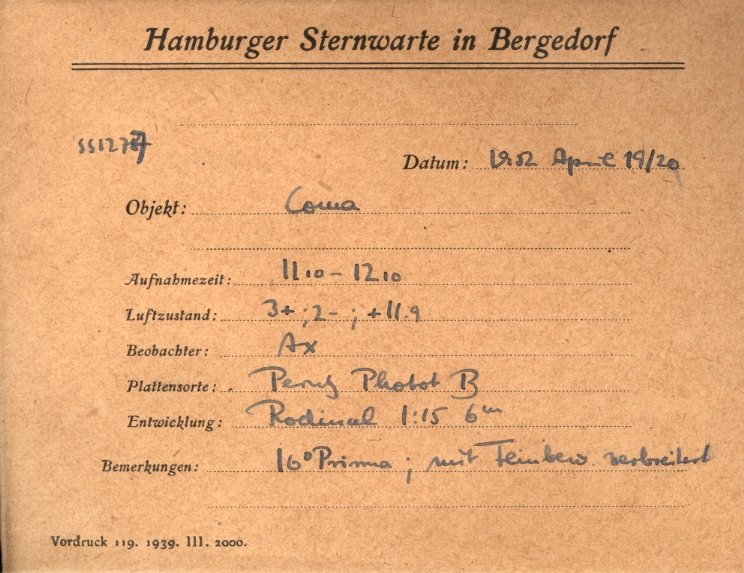 Hamburger Sternwarte in Bergedorf
Datum: 1952 April 19/20
Objekt: Coma
Aufnahmezeit: 11 10 – 12 10
Luftzustand: 3+ ; 2- ; +11.9
Beobachter: Ax
Plattensorte: Perutz Phobot B
Entwicklung: Rodinal 1:15 6m
Bemerkungen: 16° Prisma ; mit Feinbew. verbreitert
Vordruck 119. 1939. III. 2000.